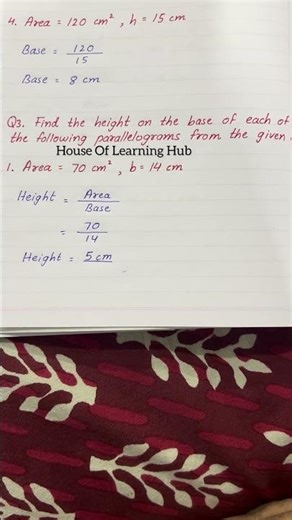 4. Area = 120 cm², h = 15 cm
Base = 120/15
Base = 8 cm
Q3. Find the height on the base of each of
the following parallelograms from the given
House Of Learning Hub
1. Area = 70 cm², b = 14 cm
Height = Area/Base
= 70/14
Height = 5 cm